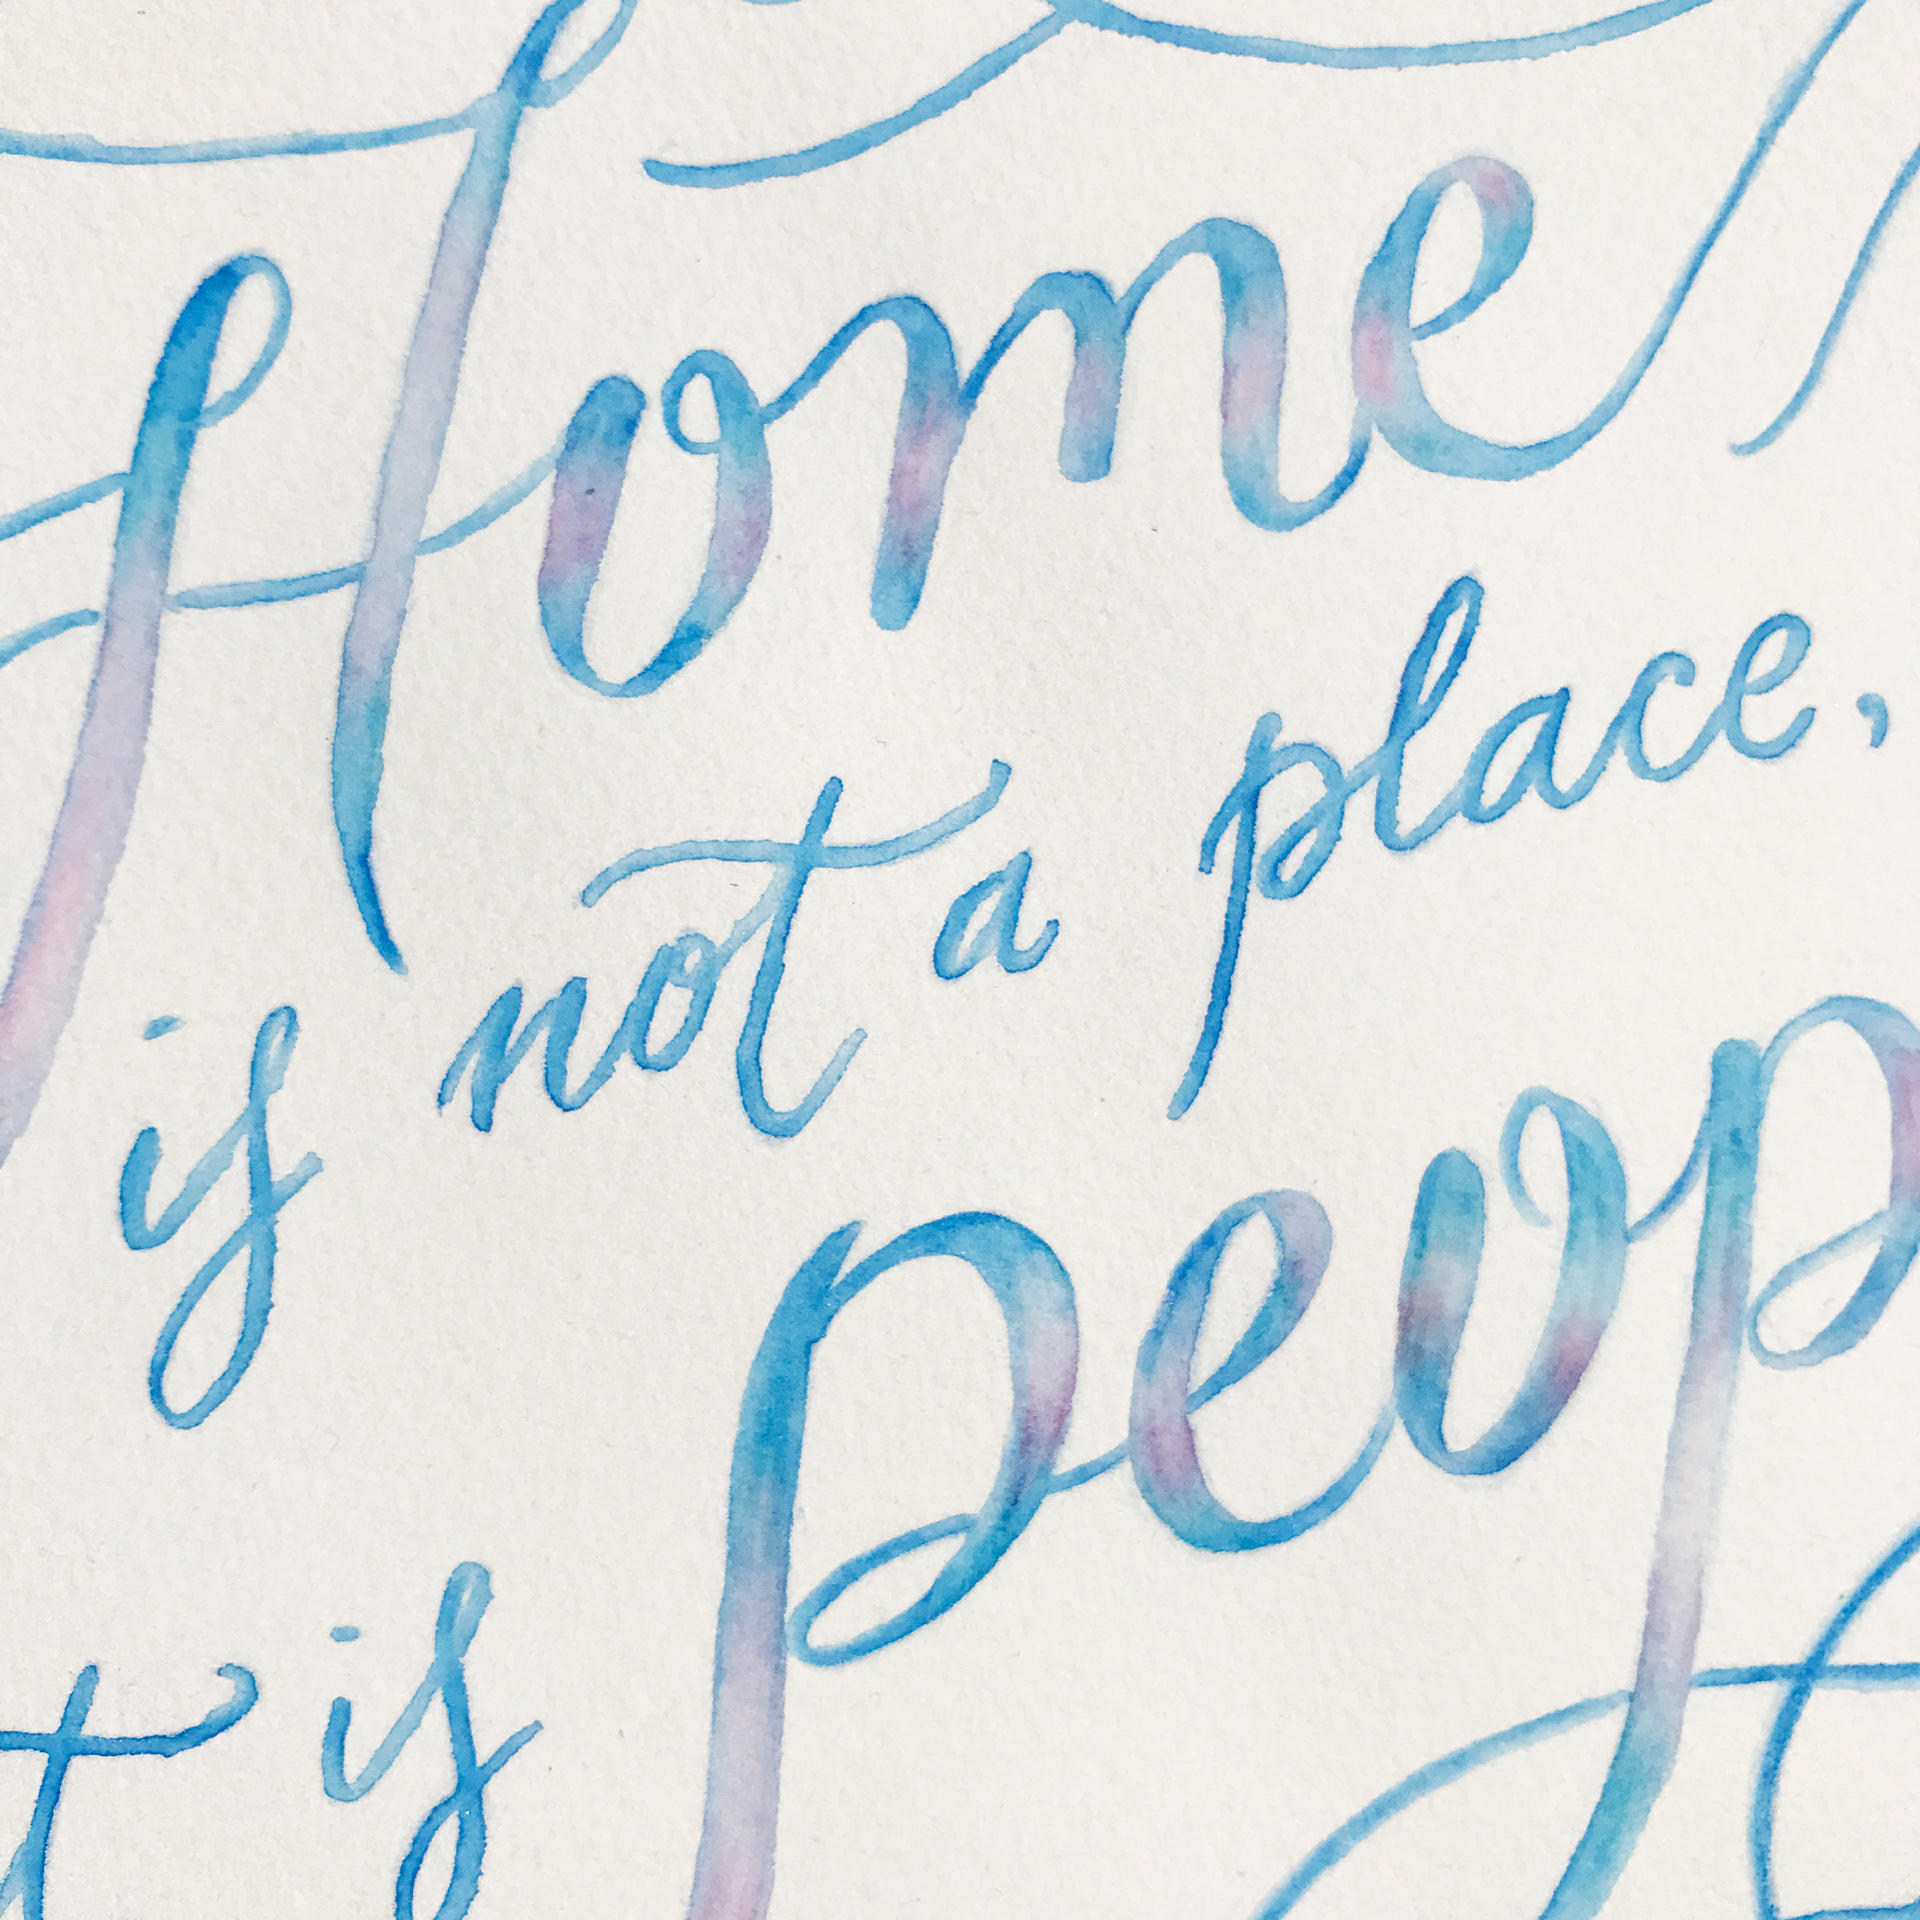 Home
is not a place,
t is peop